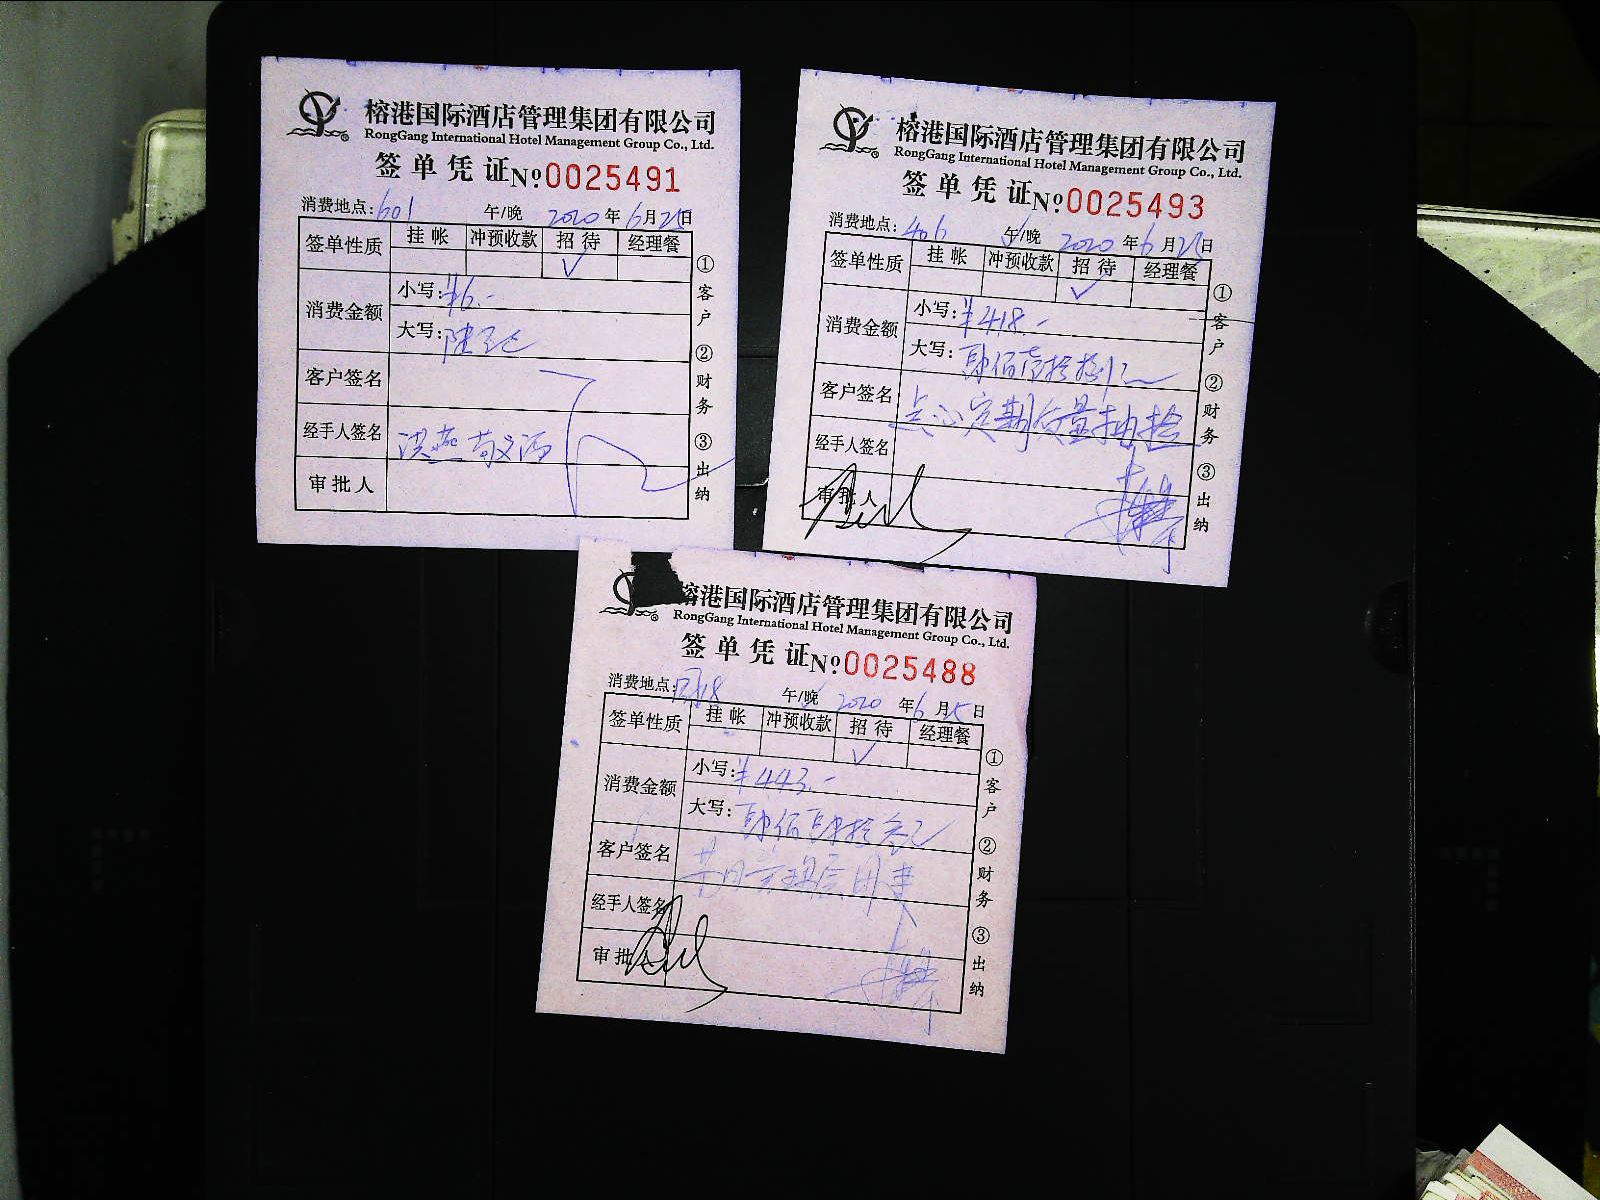 榕港国际酒店管理集团有限公司
RongGang International Hotel Management Group Co., Ltd.
签单凭证 № 0025491
消费地点: 601 午/晚 2020 年 6 月 25 日
签单性质 挂帐 冲预收款 招待 经理餐
✓
消费金额 小写: ¥6.-
大写: 陆元
客户签名
经手人签名 洪燕敬酒
审批人
①客户 ②财务 ③出纳
榕港国际酒店管理集团有限公司
RongGang International Hotel Management Group Co., Ltd.
签单凭证 № 0025493
消费地点: 406 午/晚 2020 年 6 月 25 日
签单性质 挂帐 冲预收款 招待 经理餐
✓
消费金额 小写: ¥418.-
大写: 肆佰壹拾捌元
客户签名 点心定期质量抽检
经手人签名
审批人
①客户 ②财务 ③出纳
榕港国际酒店管理集团有限公司
RongGang International Hotel Management Group Co., Ltd.
签单凭证 № 0025488
消费地点: 午/晚 2020 年 6 月 25 日
签单性质 挂帐 冲预收款 招待 经理餐
✓
消费金额 小写: ¥443.-
大写: 肆佰肆拾叁元
客户签名
经手人签名
审批人
①客户 ②财务 ③出纳